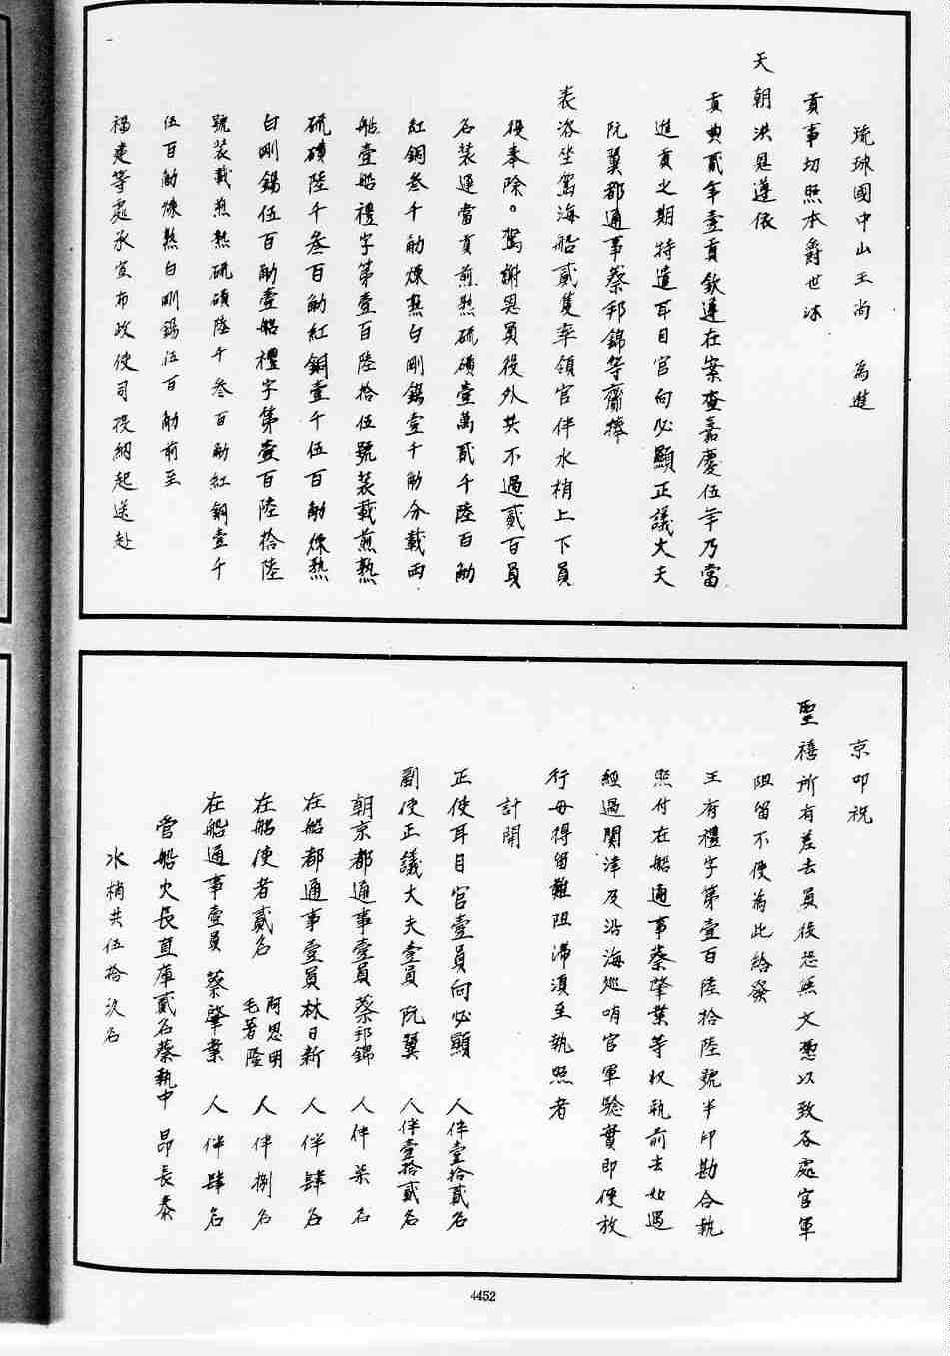 琉球國中山王尚　為進
貢事切照本爵世沐
天朝洪恩遵依
貢典貳年壹貢欽遵在案查嘉慶伍年乃當
進貢之期特遣耳目官向必顯正議大夫
阮翼都通事蔡邦錦等齎捧
表咨坐駕海船貳隻率領官伴水梢上下員
役奉除。駕謝恩員役外共不過貳百員
名裝運當貢煎熟硫磺壹萬貳千陸百觔
紅銅叁千觔煉熟白剛錫壹千觔分載兩
船壹船禮字第壹百陸拾伍號裝載煎熟
硫磺陸千叁百觔紅銅壹千伍百觔煉熟
白剛錫伍百觔壹船禮字第壹百陸拾陸
號裝載煎熟硫磺陸千叁百觔紅銅壹千
伍百觔煉熟白剛錫伍百觔前至
福建等處承宣布政使司投納起送赴
京叩祝
聖禧所有差去員役恐無文憑以致各處官軍
阻留不便為此給發
王府禮字第壹百陸拾陸號半印勘合執
照付在船通事蔡肇業等收執前去如遇
經過關津及沿海巡哨官軍驗實即便放
行毋得留難阻滯須至執照者
計開
正使耳目官壹員向必顯　人伴壹拾貳名
副使正議大夫壹員　阮翼　人伴壹拾貳名
朝京都通事壹員蔡邦錦　人伴柒名
在船都通事壹員林日新　人伴肆名
在船使者貳名　阿思明　毛著陸　人伴捌名
在船通事壹員　蔡肇業　人伴肆名
管船火長直庫貳名蔡執中　昂長泰
水梢共伍拾玖名
4452